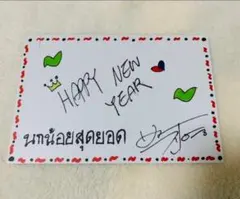 HAPPY NEW
YEAR
นกน้อยสุดยอด